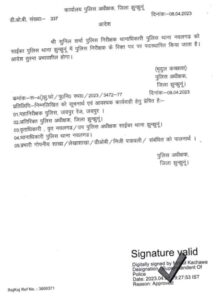 कार्यालय पुलिस अधीक्षक, जिला झुन्झुनूं
डी.ओ.बी. संख्या:- 337
दिनांक:-08.04.2023
आदेश
श्री सुनिल शर्मा पुलिस निरीक्षक थानाधिकारी पुलिस थाना नवलगढ को
साईबर पुलिस थाना झुन्झुनूं में पुलिस निरीक्षक के रिक्त पद पर पदस्थापित किया जाता है।
आदेश तुरन्त प्रभावशील होगा।
(मृदुल कच्छावा)
पुलिस अधीक्षक,
जिला झुन्झुनूं।
2023/ 3472-77
दिनांक:-08.04.2023
प्रतिलिपि:-निम्नलिखित को सूचनार्थ एवं आवश्यक कार्यवाही हेतु प्रेषित है:-
01.महानिरीक्षक पुलिस, जयपुर रेंज, जयपुर।
02.अतिरिक्त पुलिस अधीक्षक, जिला झुन्झुनूं।
03.वृताधिकारी, वृत नवलगढ/
04.थानाधिकारी पुलिस थाना नवलगढ।
05.प्रभारी गोपनीय शाखा/लेखाशाखा/डी.ओ.बी./निजी पत्रावली/ संबंधित को पालनार्थ।
पुलिस अधीक्षक,
जिला झुन्झुनूं
Signature valid
Digitally signed by Mridul Kachawa
Designation: Superintendent Of
Police
Date: 2023.04.08 27:53 IST
Reason: Approved
RajKaj Ref No.: 3600371